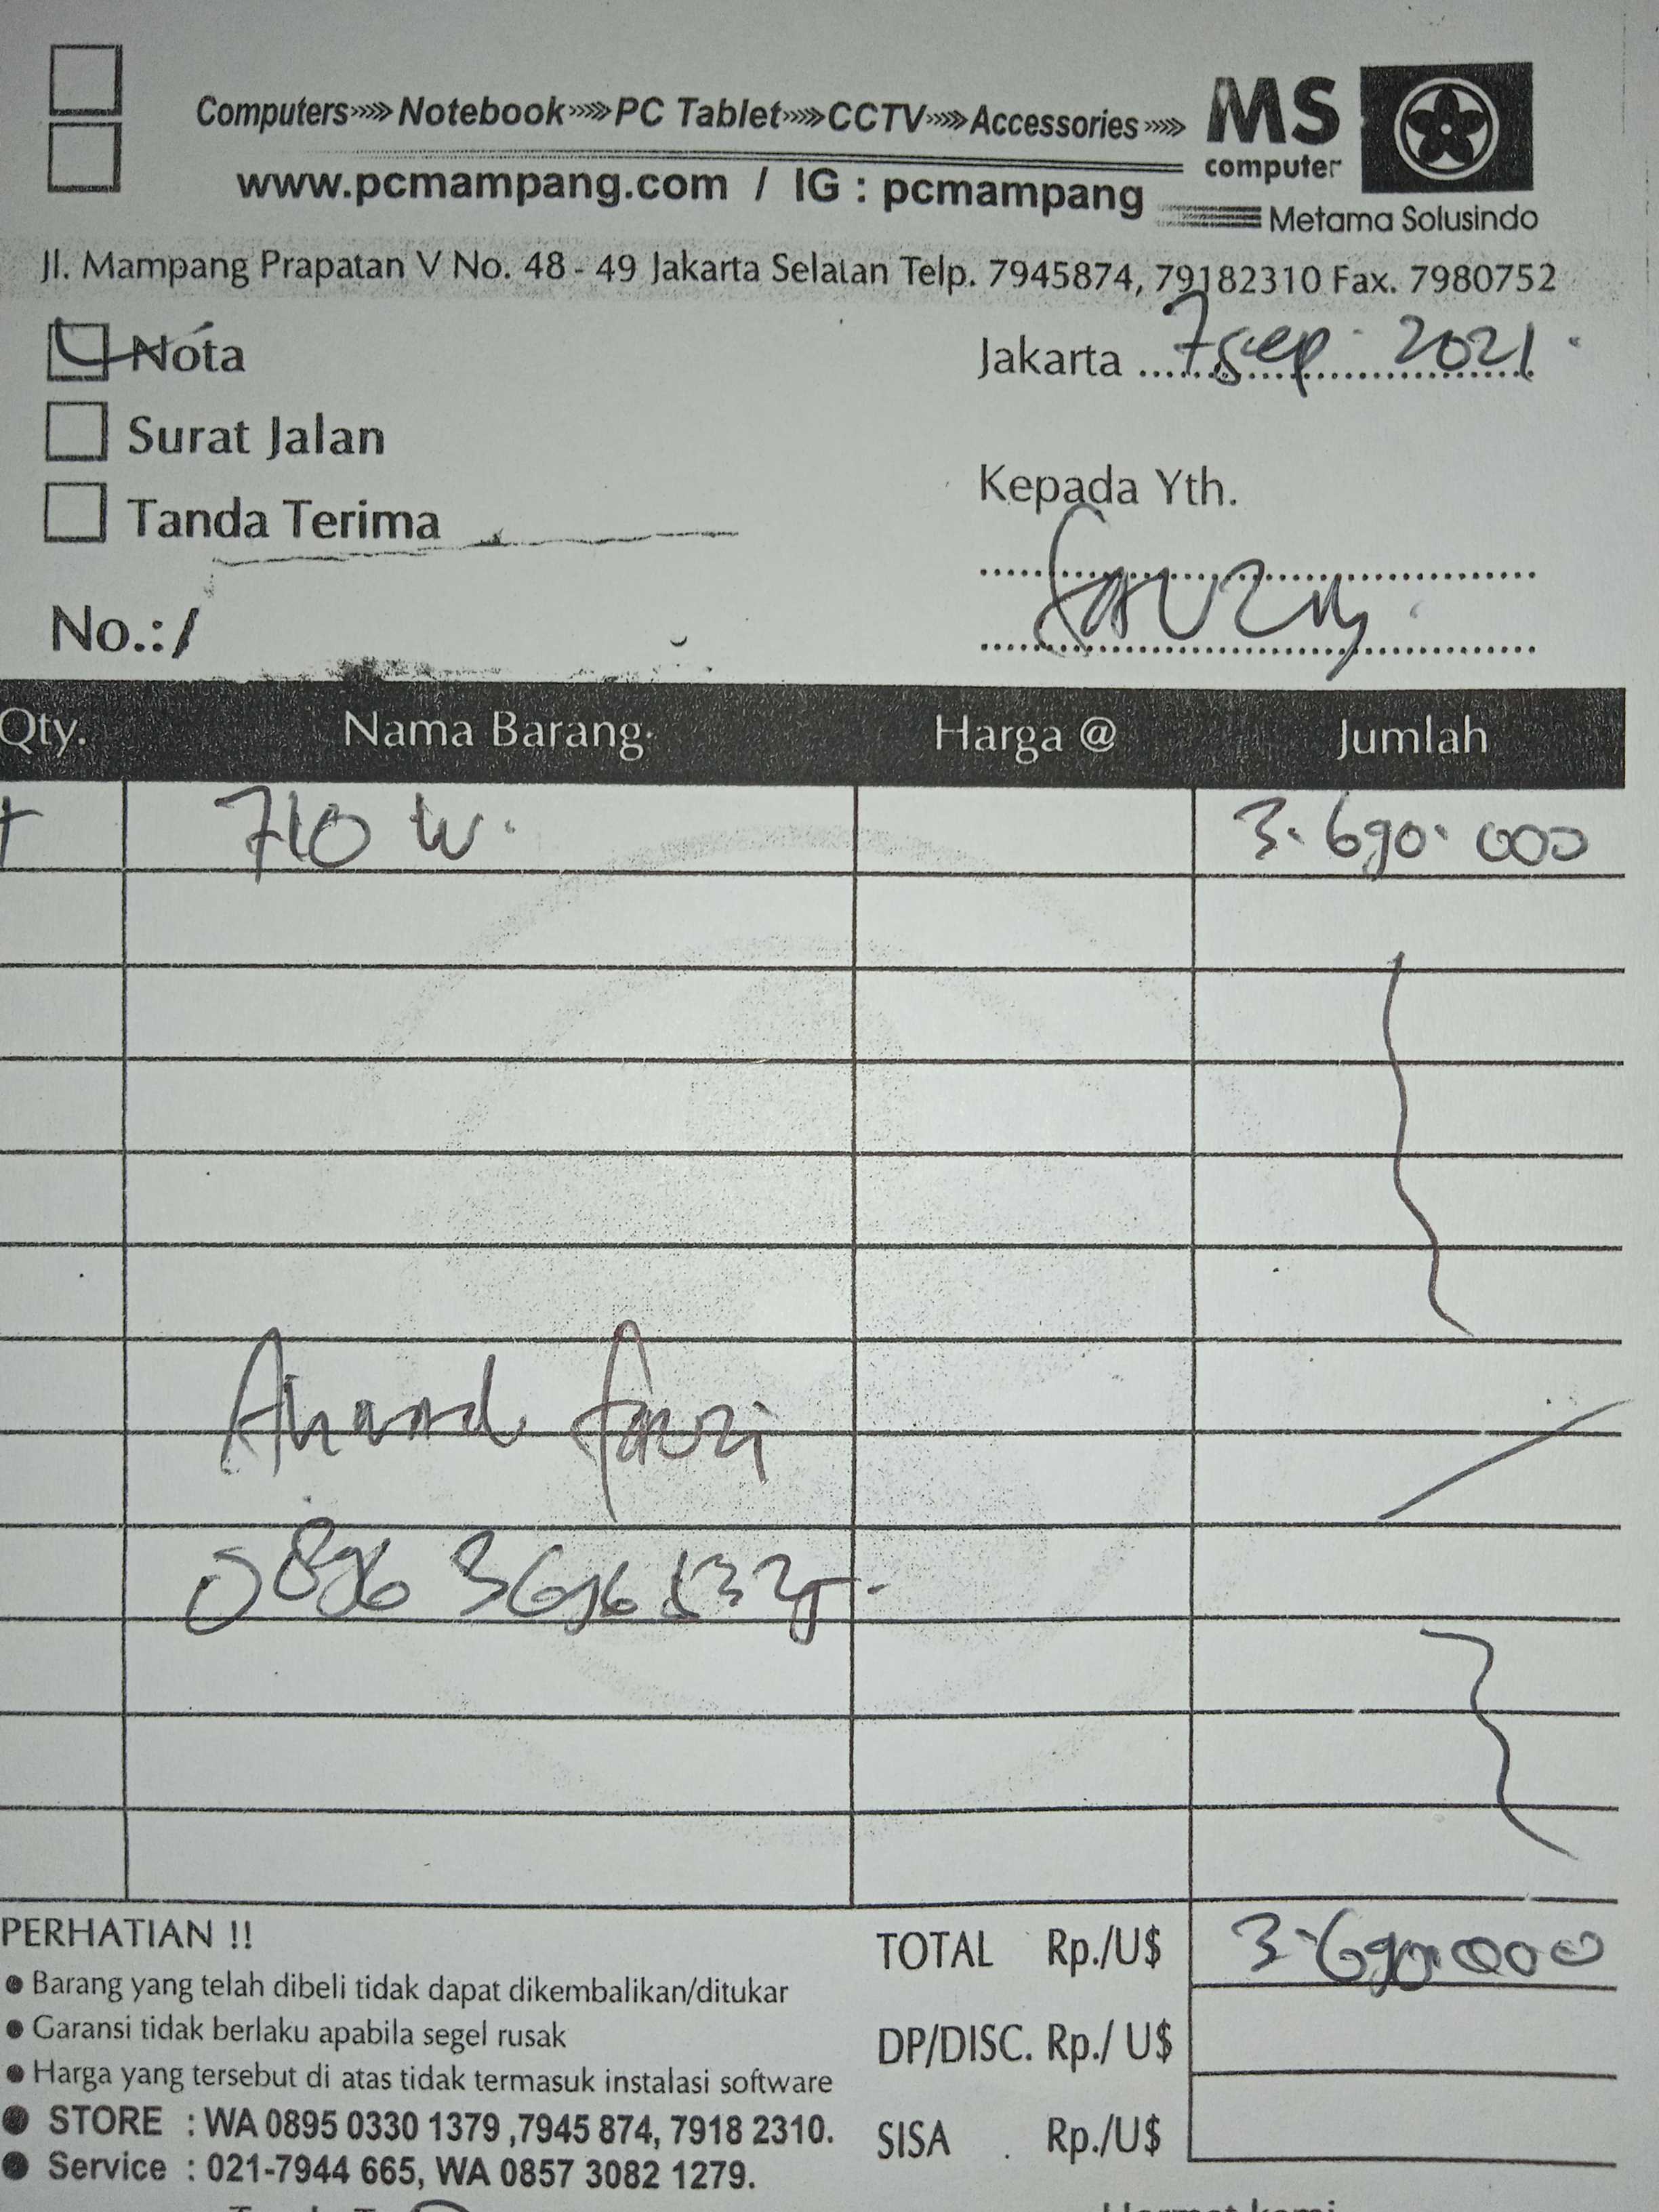 Computers»»» Notebook»»» PC Tablet»»» CCTV»»» Accessories»»»
MS
computer
www.pcmampang.com / IG : pcmampang
Metama Solusindo
Jl. Mampang Prapatan V No. 48 - 49 Jakarta Selatan Telp. 7945874, 79182310 Fax. 7980752
Nota
Jakarta ....7 sep 2021
Surat Jalan
Kepada Yth.
Tanda Terima
No.:/
Qty. Nama Barang Harga @ Jumlah
710 w. 3.690.000
PERHATIAN !!
TOTAL Rp./U$ 3.690.000
• Barang yang telah dibeli tidak dapat dikembalikan/ditukar
• Garansi tidak berlaku apabila segel rusak
DP/DISC. Rp./ U$
• Harga yang tersebut di atas tidak termasuk instalasi software
• STORE : WA 0895 0330 1379 ,7945 874, 7918 2310.
SISA Rp./U$
• Service : 021-7944 665, WA 0857 3082 1279.